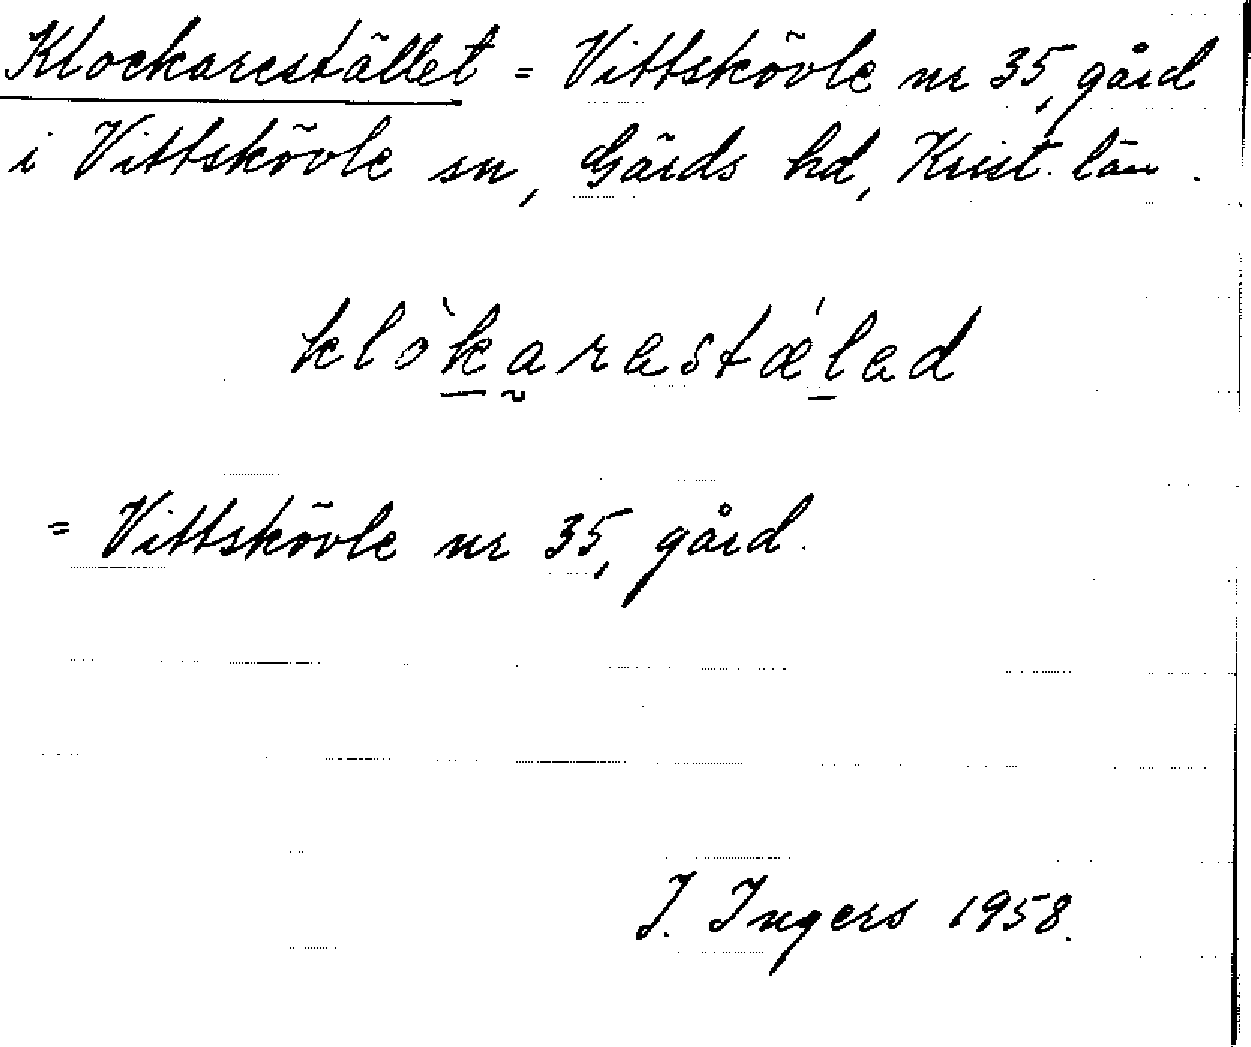 Klockarestället = Vittskövle nr 35, gård
i Vittskövle sn, Gärds hd, Krist. län.
klòkarastǽlad
= Vittskövle nr 35, gård.
I. Ingers 1958.